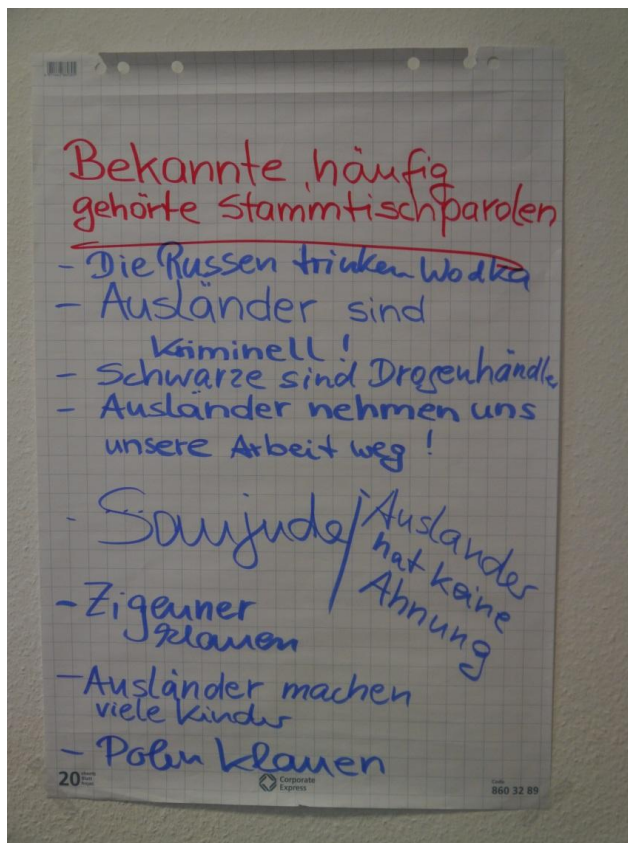 Bekannte, häufig
gehörte Stammtischparolen
- Die Russen trinken Wodka
- Ausländer sind
Kriminell!
- Schwarze sind Drogenhändle
- Ausländer nehmen uns
unsere Arbeit weg!
- Saujude/
Ausländer
hat keine
Ahnung
- Zigeuner
klauen
- Ausländer machen
viele Kinder
- Polen klauen
20
Corporate
Express
Code
860 32 89